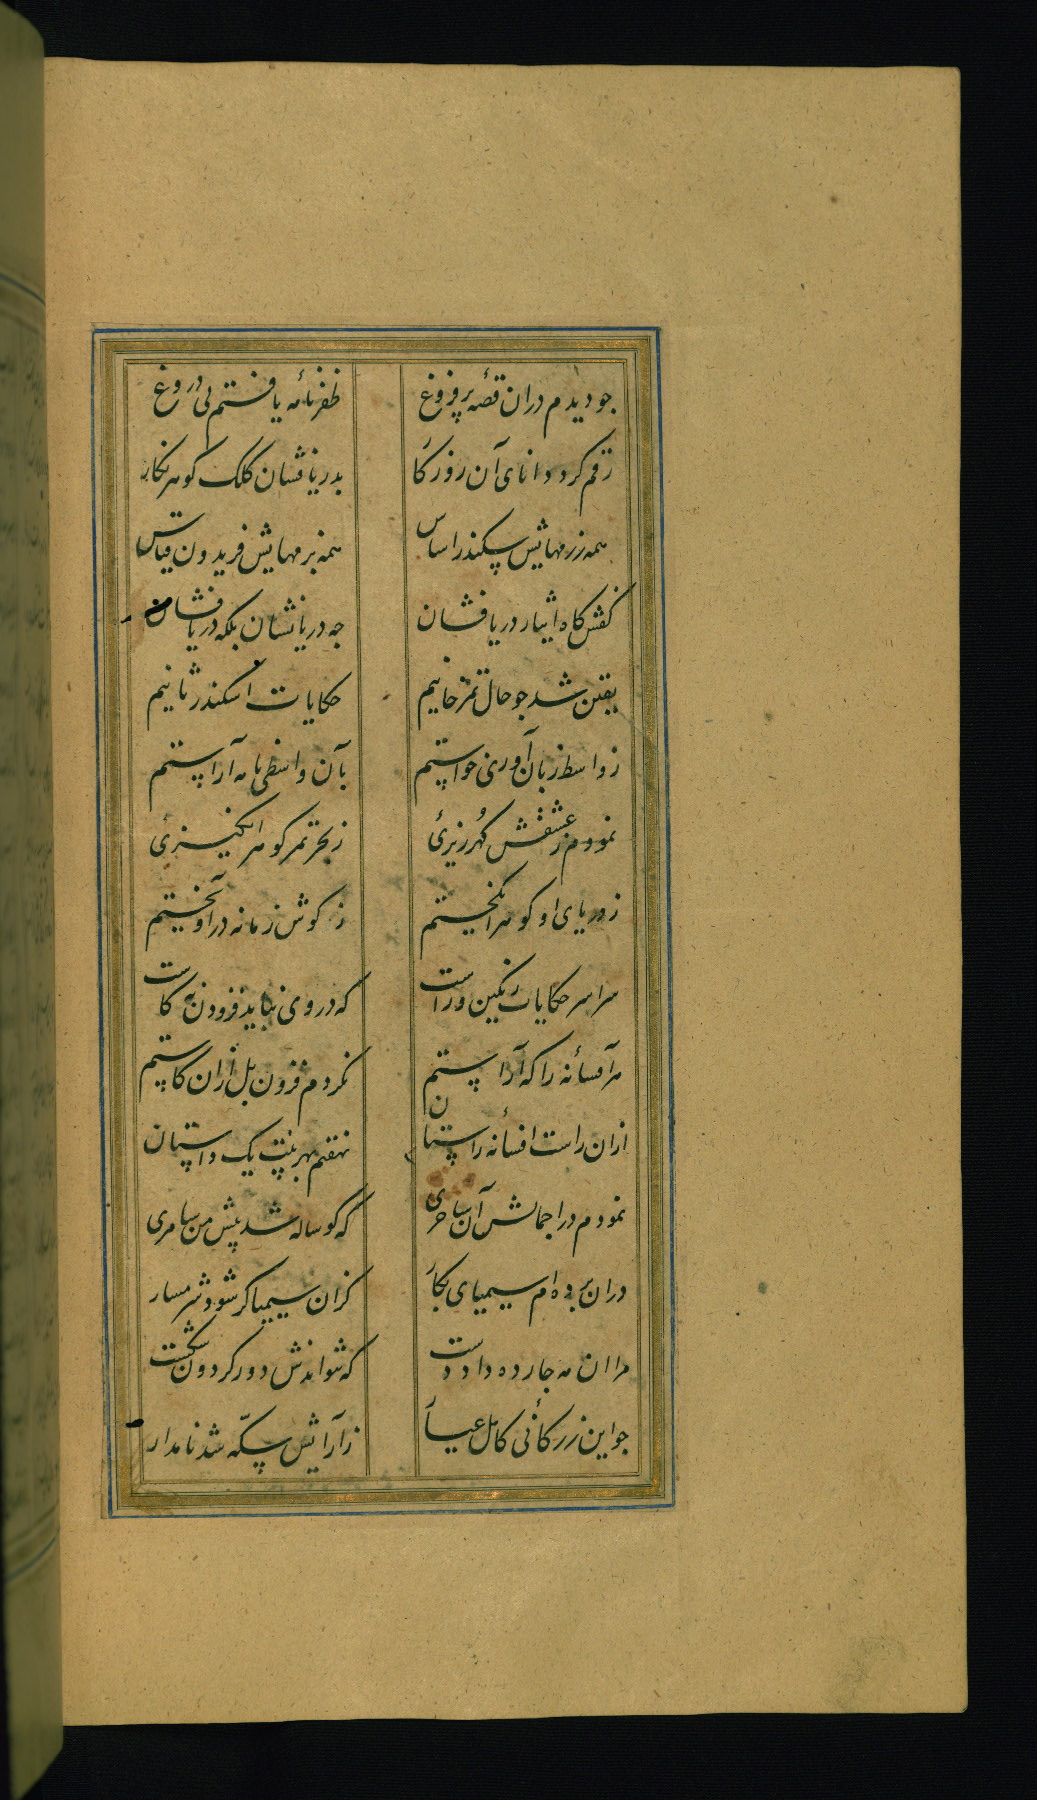 جو دیدم دران قصهٔ پر فروغ ظفرنامهٔ یافتم بی دروغ
رقم کرد دانای آن روزکار بدریافشان کلک کوهر نکار
همه رزمهایش سکندر اساس همه بزمهایش فریدون قیاس
کفش کاه ایثار دریا فشان جه دریا نشان بلکه دریا فشان
یقین شد جو حال تمرخانیم حکایات اسکندر ثانیم
ز واسط زبان آوری خواستم بآن واسطی نامه آراستم
نمودم ز عشقش کهرریزئ ز بحر تمر کوهر انکیزئ
ز دریای او کوهر انکیختم ز کوش زمانه در اویختم
سراسر حکایات رنکین و راست که در وی نباید فزود نه کاست
هر آفسانه را که آراستم نکردم فزون بل ازان کاستم
ازان راست افسانه راستان نهفتم بهر بیت یک داستان
نمودم در اجمالش آن ساحری که کوساله شد پیش من سامری
دران برده ام سیمیای بکار کزان سیمیاکر شود شرمسار
مرا ان مه جارده داد دست که نتواندش دور کردون شکست
جو این زر کانی کامل عیار ز آرایش سکه شد نامدار